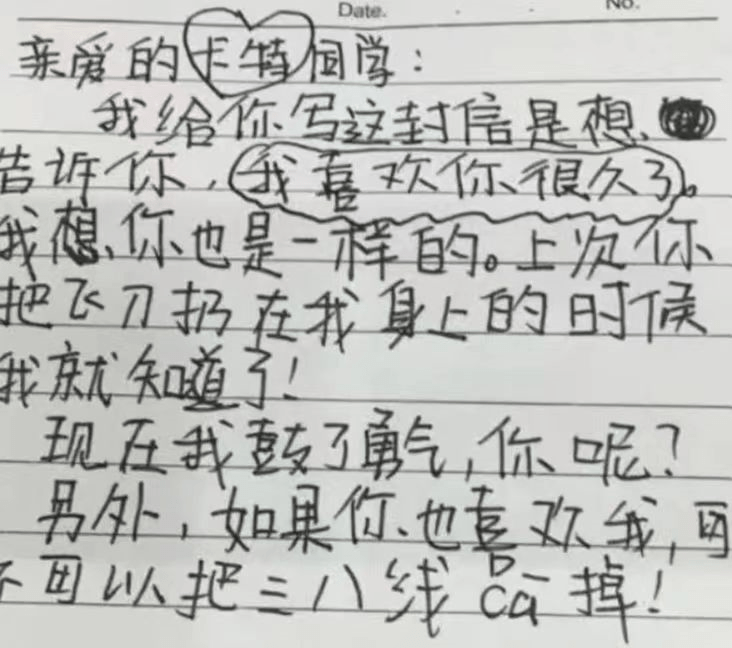 Date. No.
亲爱的卡特同学:
我给你写这封信是想
告诉你,我喜欢你很久了。
我想你也是一样的。上次你
把飞刀扔在我身上的时候
我就知道了!
现在我鼓了勇气,你呢?
另外,如果你也喜欢我,可
不可以把三八线cā掉!